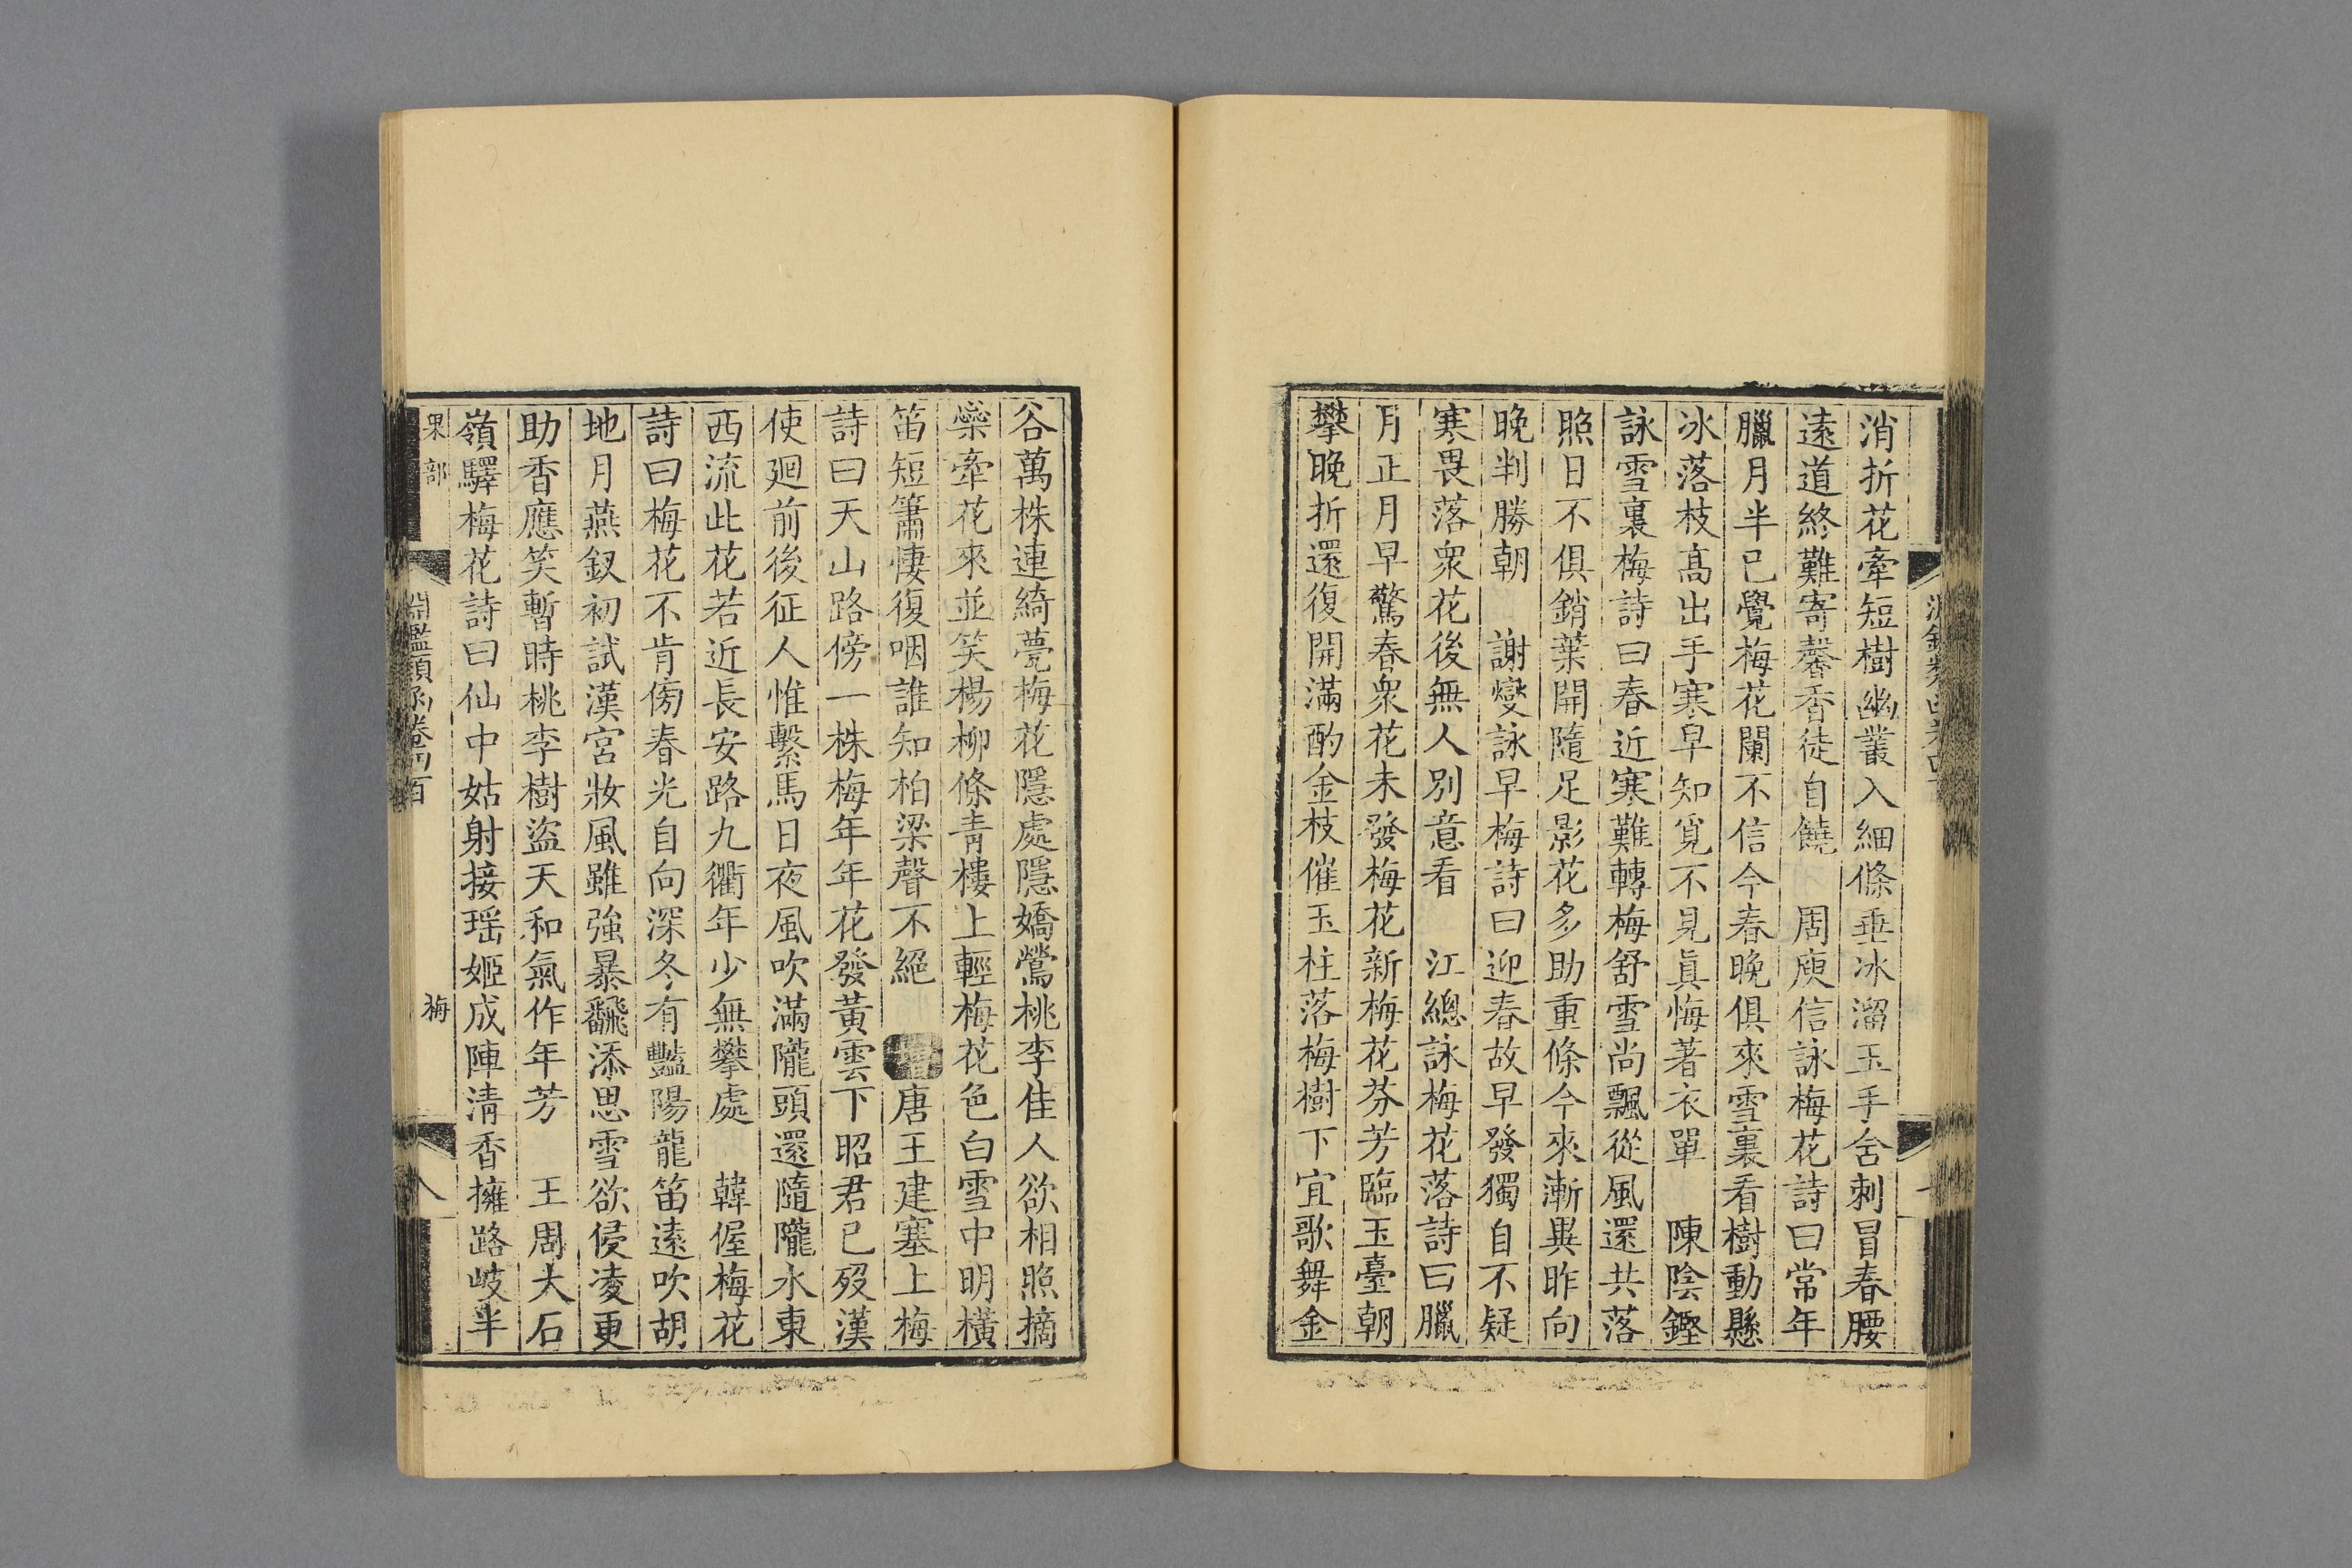 消折花牽短樹幽叢入細條垂冰溜玉手含刺冒春腰
遠道終難寄馨香徒自饒 周庾信詠梅花詩曰常年
臘月半已覺梅花闌不信今春晚俱來雪裏看樹動懸
冰落枝高出手寒早知覓不見真悔著衣單 陳陰鏗
詠雪裏梅詩曰春近寒難轉梅舒雪尚飄從風還共落
照日不俱銷葉開隨足影花多助重條今來漸異昨向
晚判勝朝 謝燮詠早梅詩曰迎春故早發獨自不疑
寒畏落衆花後無人別意看 江總詠梅花落詩曰臘
月正月早驚春衆花未發梅花新梅花芬芳臨玉臺朝
攀晚折還復開滿酌金枝催玉柱落梅樹下宜歌舞金
谷萬株連綺甍梅花隱處隱嬌鶯桃李佳人欲相照摘
蘂牽花來並笑楊柳條青樓上輕梅花色白雪中明橫
笛短簫悽復咽誰知柏梁聲不絕 增唐王建塞上梅
詩曰天山路傍一株梅年年花發黃雲下昭君已歿漢
使廻前後征人惟繫馬日夜風吹滿隴頭還隨隴水東
西流此花若近長安路九衢年少無攀處 韓偓梅花
詩曰梅花不肯傍春光自向深冬有豔陽龍笛遠吹胡
地月燕釵初試漢宮妝風雖強暴飜添思雪欲侵凌更
助香應笑暫時桃李樹盜天和氣作年芳 王周大石
嶺驛梅花詩曰仙中姑射接瑶姬成陣清香擁路岐半
果部 淵鑑類函卷四百 梅 八